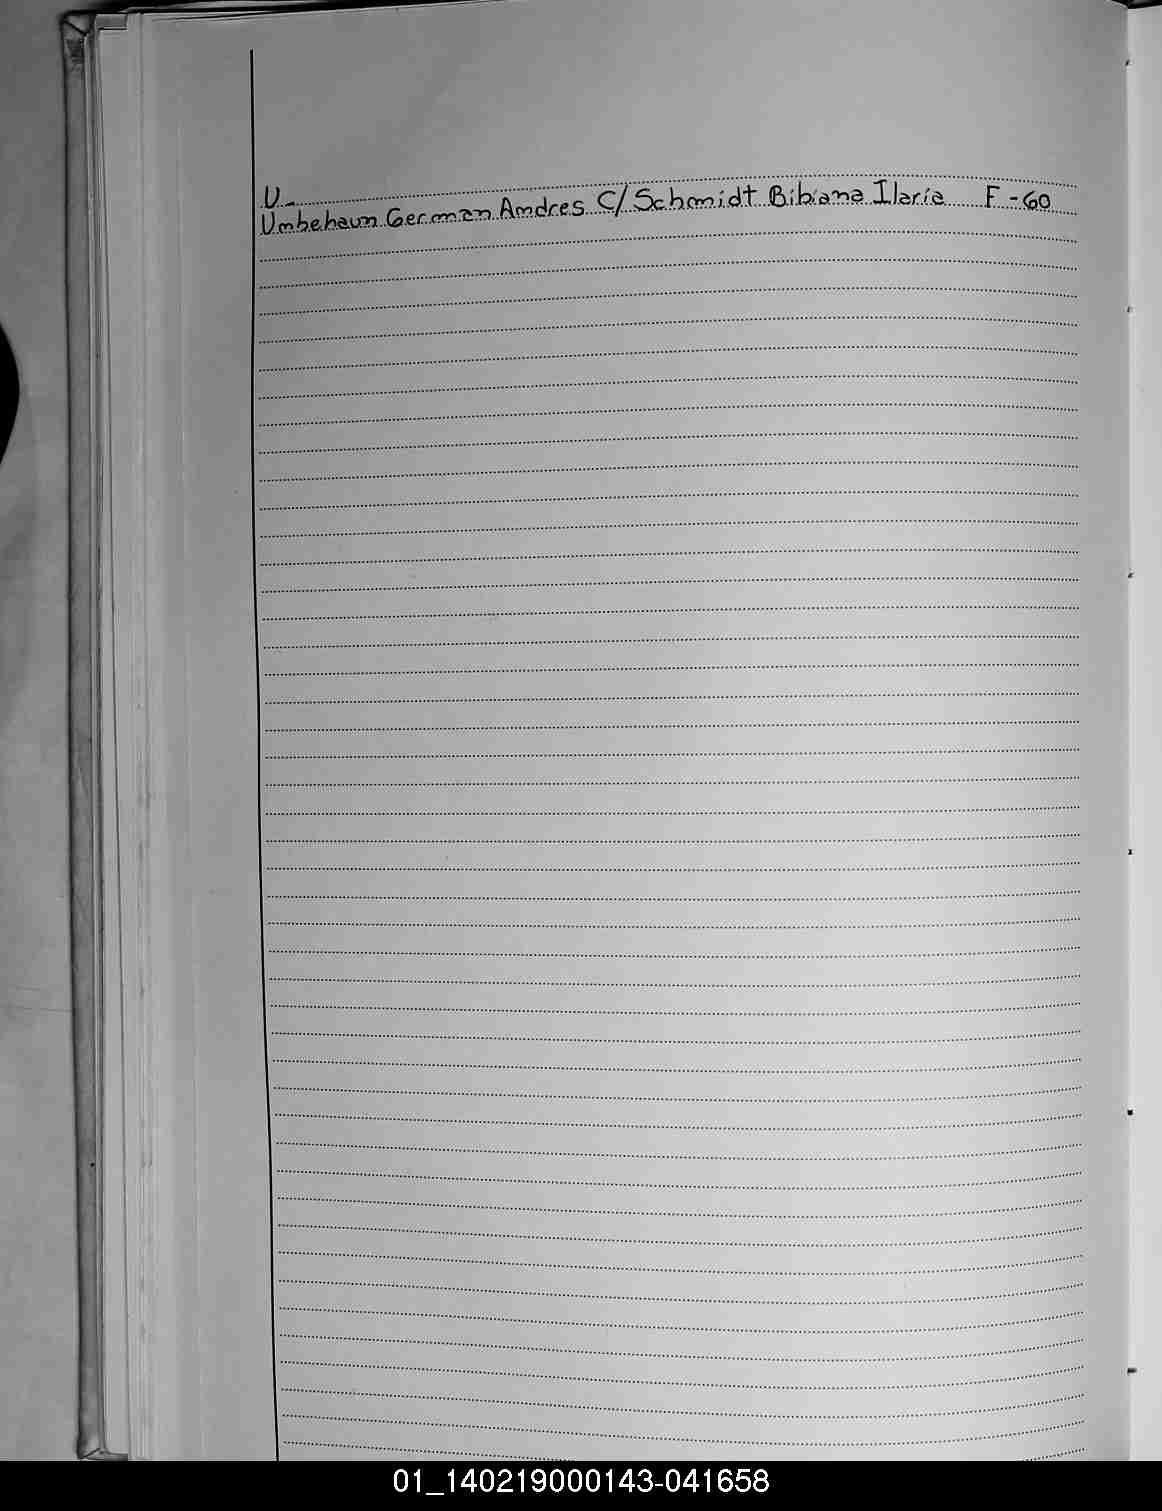 U_
Umbehaun German Andres C/ Schmidt Bibiana Ilaria F-60
01_140219000143-041658